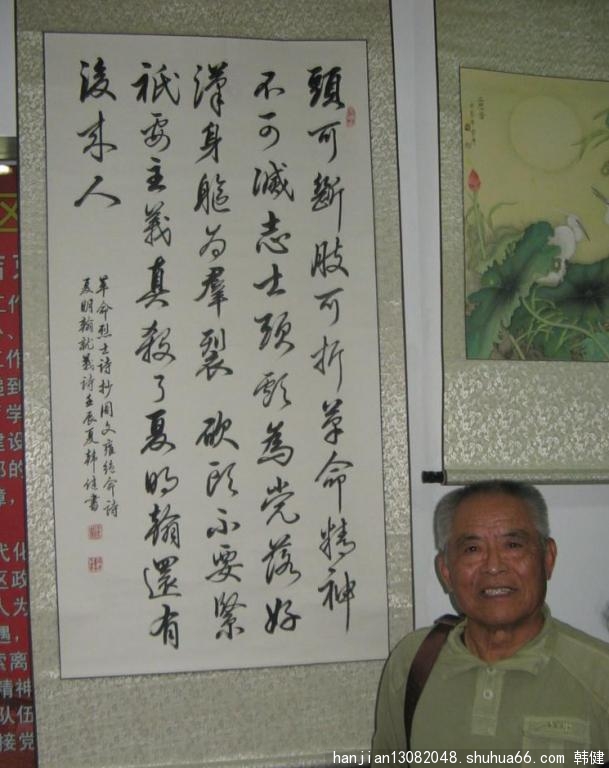 頭可斷肢可折革命精神
不可滅志士頭顱為党落好
漢身軀為羣裂砍頭不要緊
祇要主義真殺了夏明翰還有
後来人
革命烈士詩抄周文雍绝命诗
夏明翰就義诗壬辰夏韩健書
区
工作
工作
追到
学
建设
部的
障，
代化
区政
人为
遇，
索离
精神
队伍
接党
hanjian13082048.shuhua66.com 韩健